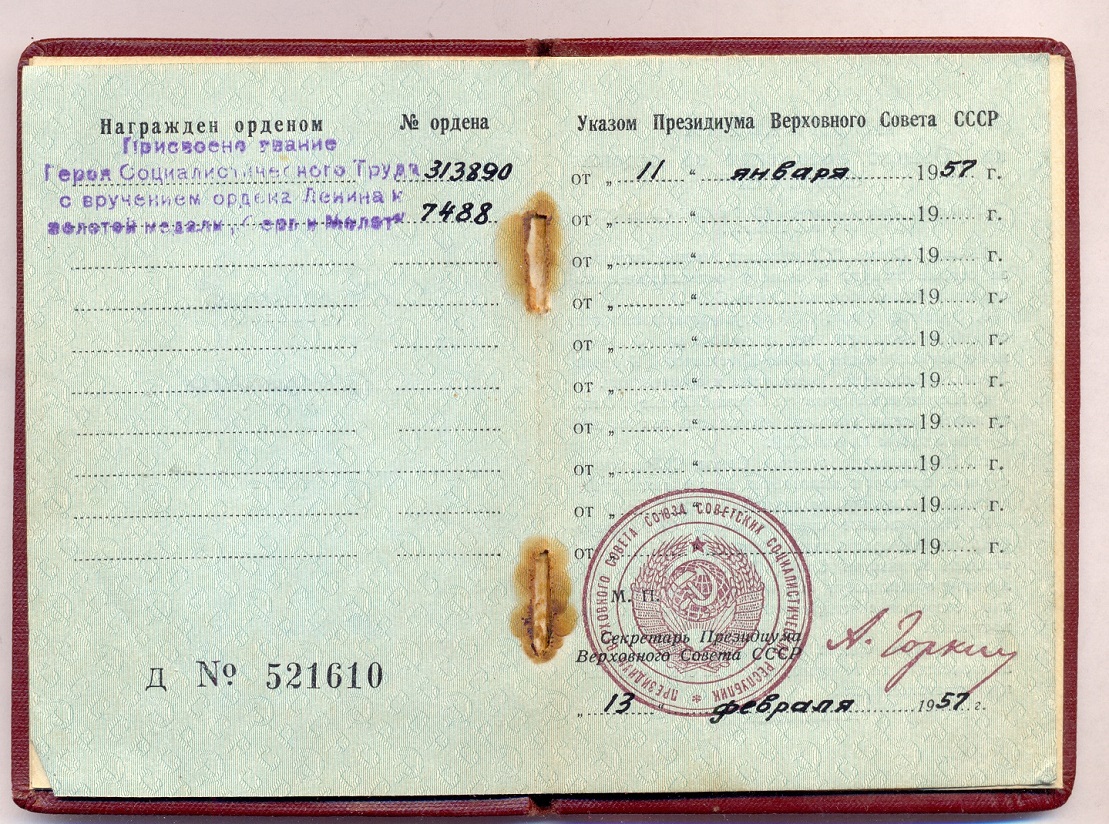 Награжден орденом № ордена
Присвоено звание
Героя Социалистического Труда 313890
с вручением ордена Ленина и
золотой медали „Серп и Молот“ 7488
Д № 521610
Указом Президиума Верховного Совета СССР
от „ 11 “ января 1957 г.
от „ “ 19 г.
от „ “ 19 г.
от „ “ 19 г.
от „ “ 19 г.
от „ “ 19 г.
от „ “ 19 г.
от „ “ 19 г.
от „ “ 19 г.
от „ “ 19 г.
ПРЕЗИДИУМ ВЕРХОВНОГО СОВЕТА СОЮЗА СОВЕТСКИХ СОЦИАЛИСТИЧЕСКИХ РЕСПУБЛИК
М. П.
Секретарь Президиума
Верховного Совета СССР
А. Горкин
„ 13 “ февраля 1957 г.